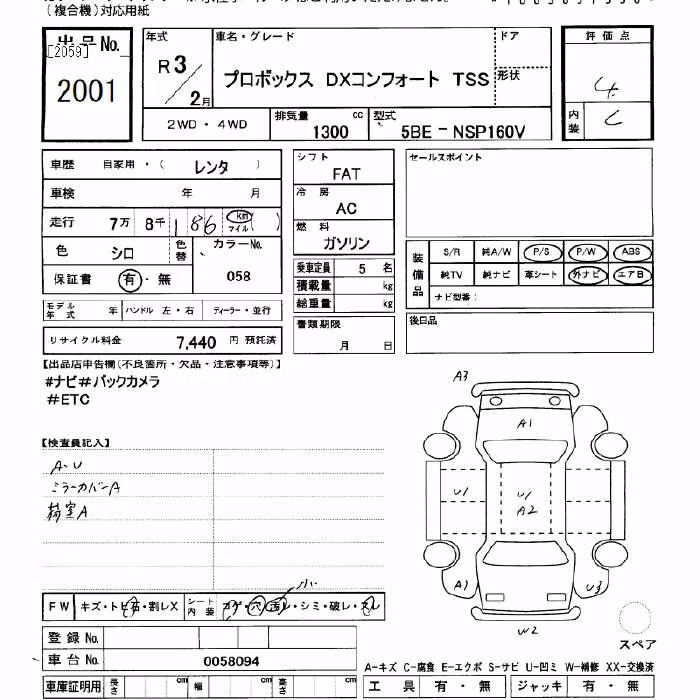 （複合機）対応用紙
出品No.
[2059]
2001
年式
R3/2月
車名・グレード
プロボックス DXコンフォート TSS
ドア
形状
評価点
4
内装
C
2WD・4WD
排気量
1300 cc
型式
5BE－NSP160V
車歴 自家用・（ レンタ ）
車検 年 月
走行 7万 8千 186 km マイル ( )
色 シロ
色替
カラーNo.
058
保証書 有・無
モデル年式 年 ハンドル 左・右 ディーラー・並行
リサイクル料金 7,440 円 預託済
シフト
FAT
冷房
AC
燃料
ガソリン
乗車定員 5 名
積載量 kg
総重量 kg
書類期限
月 日
セールスポイント
装備品
S/R 純A/W P/S P/W ABS
純TV 純ナビ 革シート 外ナビ エアB
ナビ型番：
後日品
【出品店申告欄（不良箇所・欠品・注意事項等）】
#ナビ#バックカメラ
#ETC
【検査員記入】
A-U
ミラーカバーA
荷室A
A3
A1
U1
U1
A2
A1
U3
W2
スペア
FW キズ・トビ石・割レX
シート内装 コゲ・穴・汚レ・シミ・破レ・スレ
小
登録No.
車台No. 0058094
車庫証明用 長さ cm 幅 cm 高さ cm
A-キズ C-腐食 E-エクボ S-サビ U-凹ミ W-補修 XX-交換済
工具 有・無 ジャッキ 有・無